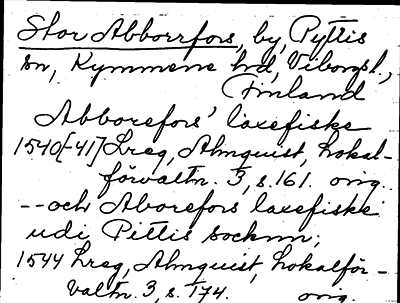 Stor Abborrfors, by, Pyttis
sn, Kymmene hd, Viborgs l.,
Finland
Abborefors' laxefiske
1540[-41] Lreg, Almquist, Lokal-
förvaltn. 3, s. 161. orig.
-- och Aborefors laxefiske
udi Pittis socknn;
1544 Lreg, Almquist, Lokalför-
valtn. 3, s. 174. orig.